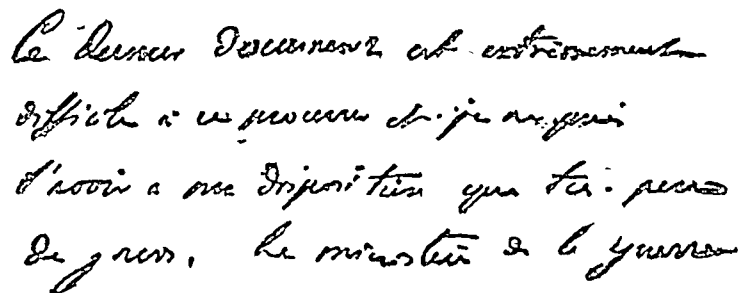 Ce dernier document est extrêmement
difficile à se procurer et je ne puis
l'avoir à ma disposition que très peu
de jours. Le ministère de la guerre